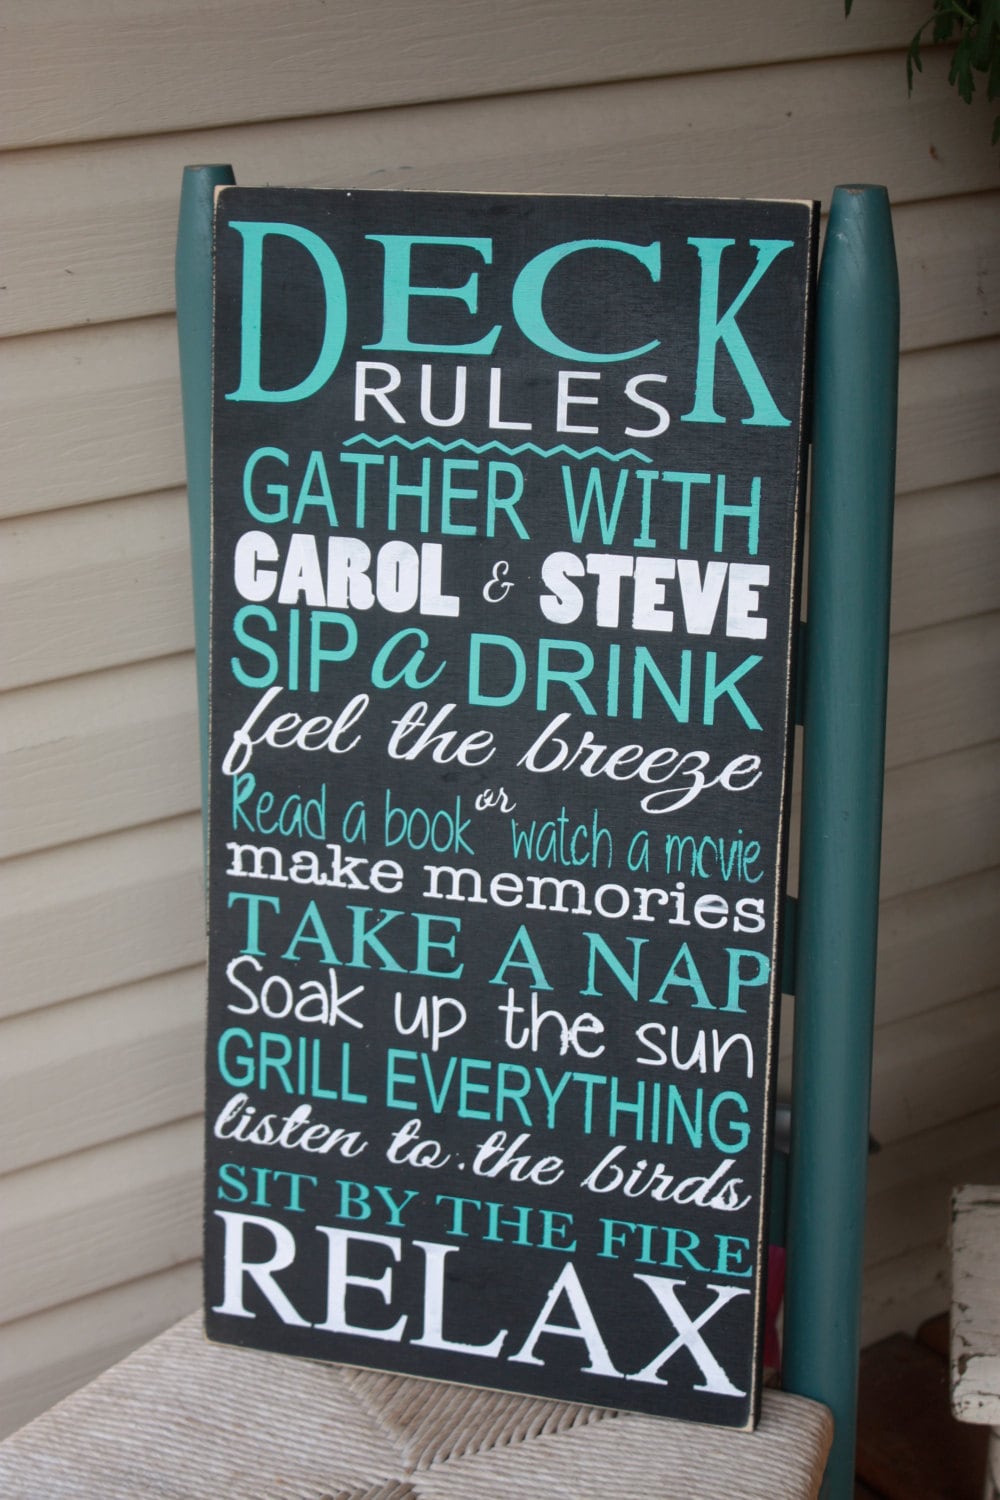 DECK
RULES
GATHER WITH
CAROL & STEVE
SIP a DRINK
feel the breeze
Read a book or watch a movie
make memories
TAKE A NAP
Soak up the sun
GRILL EVERYTHING
listen to the birds
SIT BY THE FIRE
RELAX